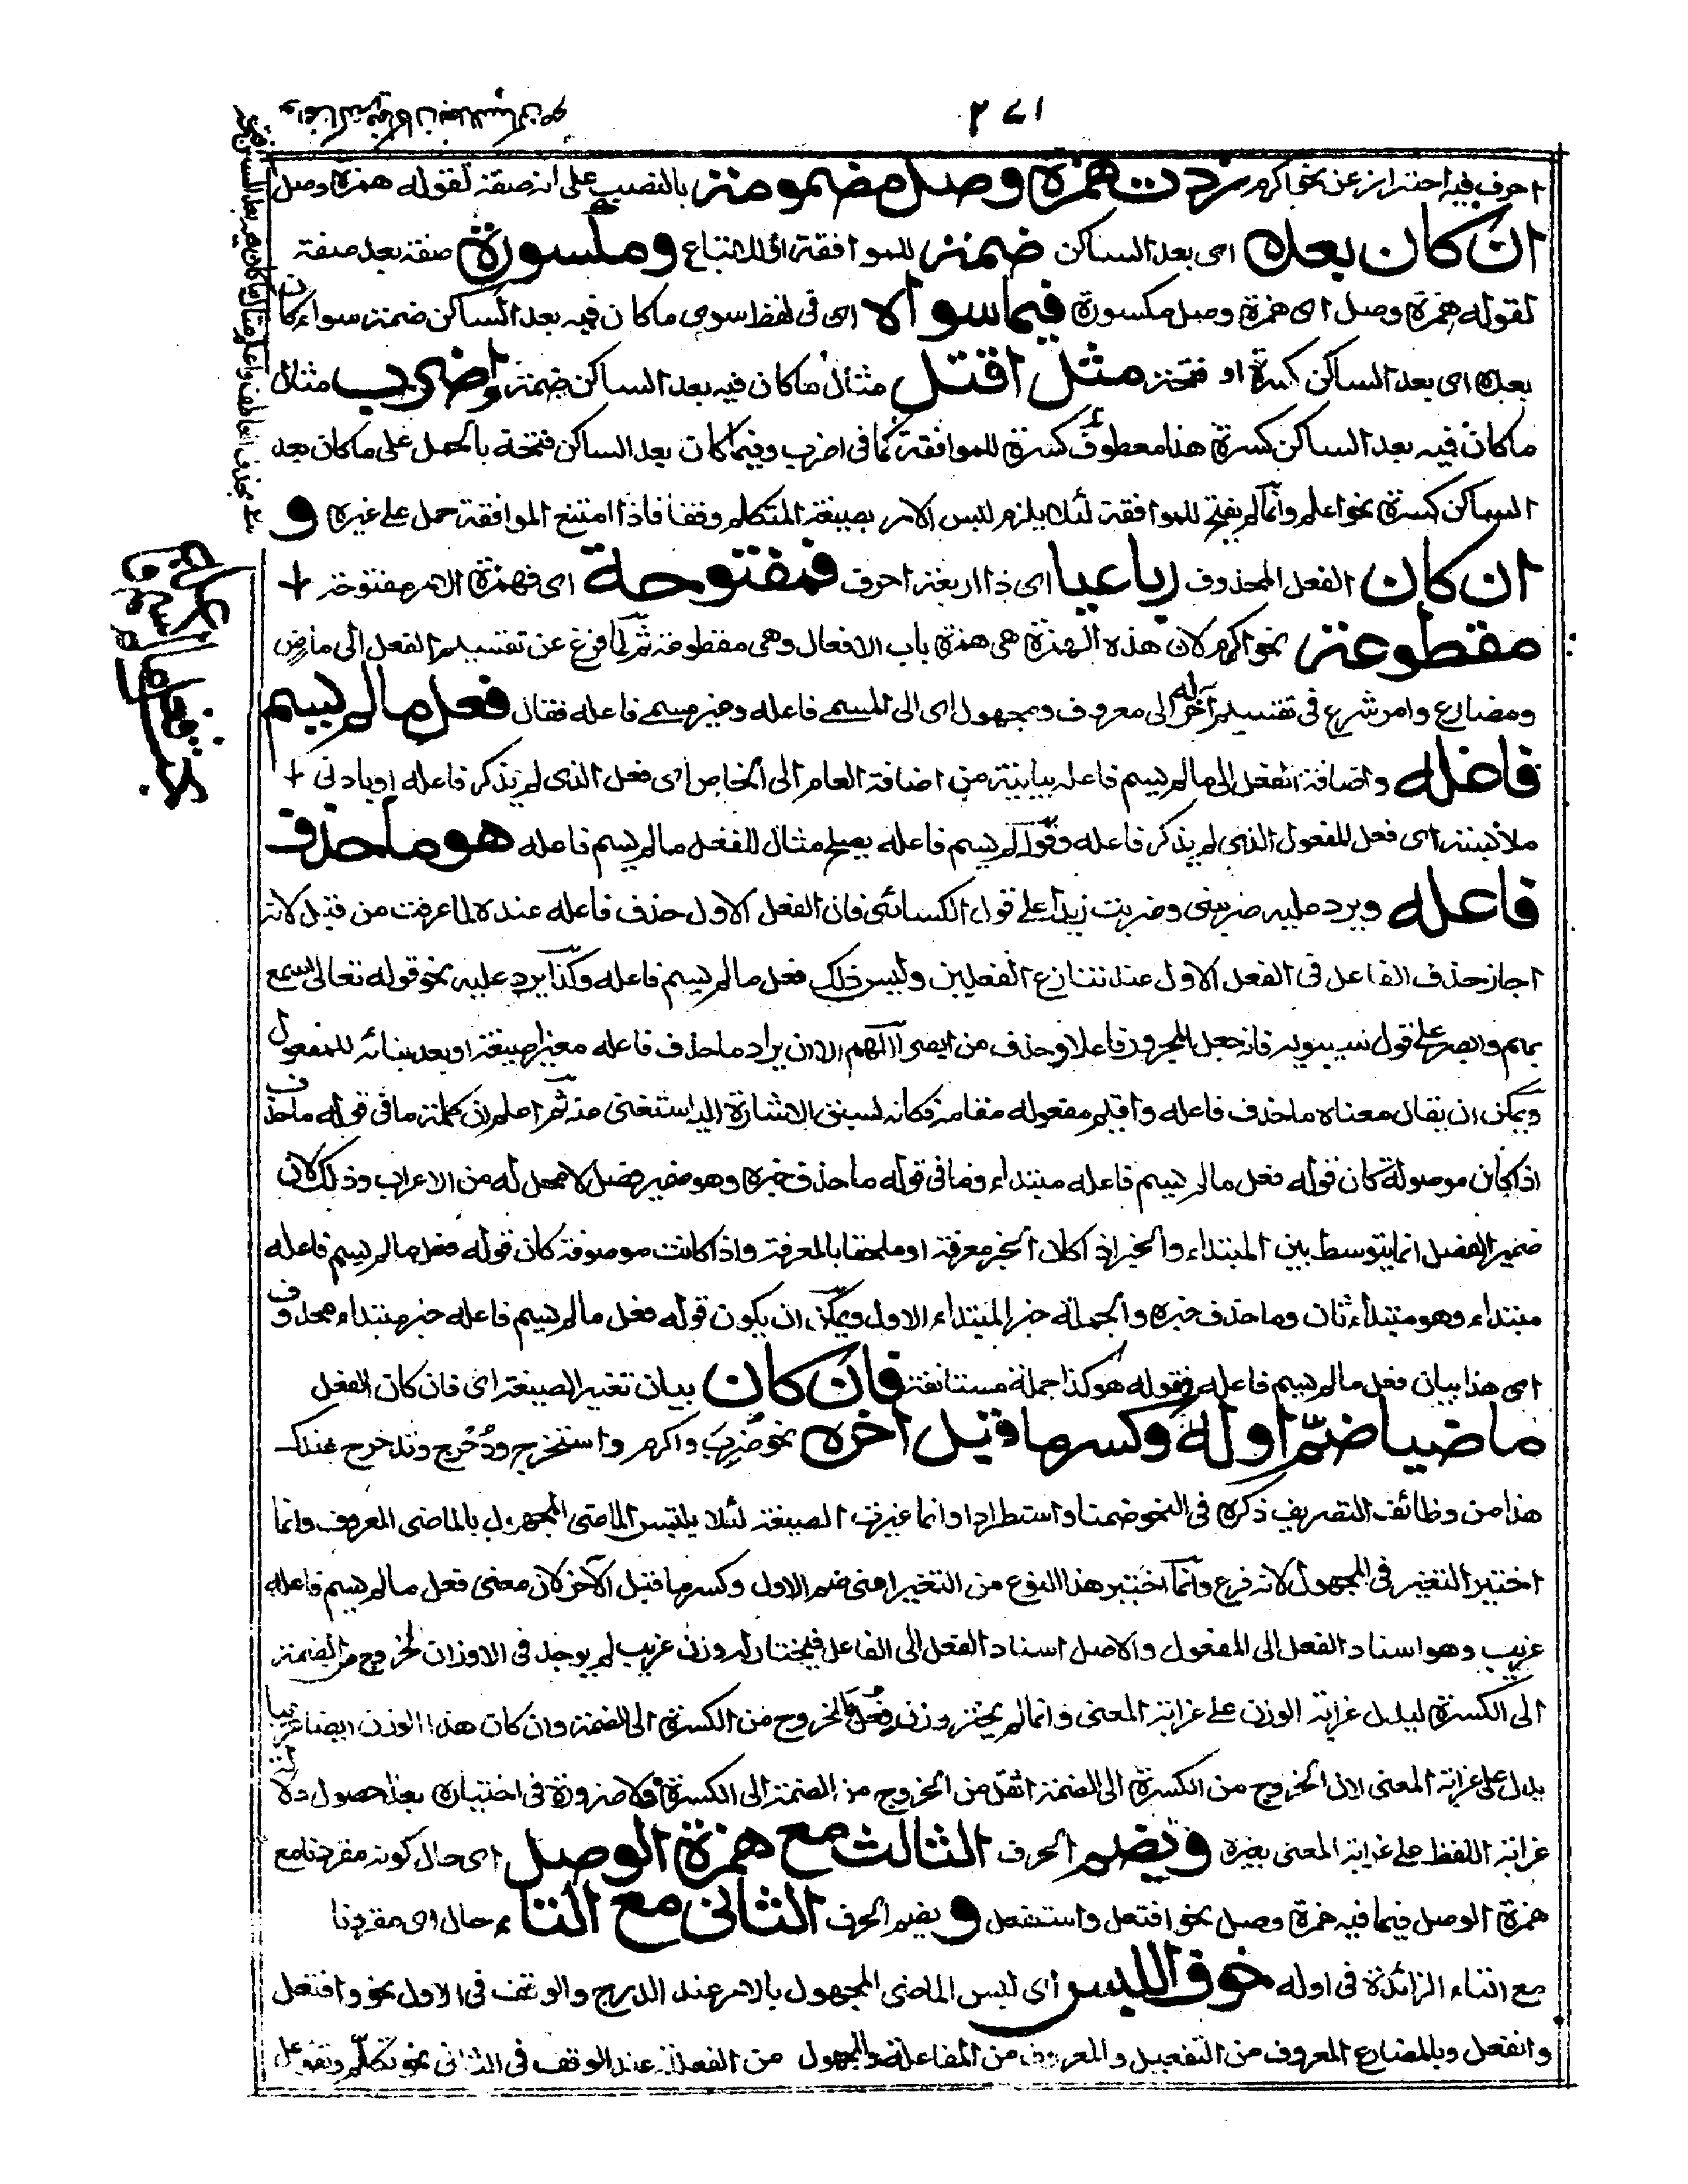 ٢٧١
احرف فيه احتراز عن نحو اكرم زدت همزة وصل مضمومة بالنصب على انه صفة لقوله همزة وصل
ان كان بعده اى بعد الساكن ضمة للموافقة او للاتباع ومكسورة صفة بعد صفة
لقوله همزة وصل اى همزة وصل مكسورة فيما سواه اى فى لفظ سوى ما كان فيه بعد الساكن ضمة سواء كان
بعده اى بعد الساكن كسرة او فتحة مثل اقتل مثال ما كان فيه بعد الساكن ضمة واضرب مثال
ما كان فيه بعد الساكن كسرة هذا معطوف كسرة للموافقة كما فى اضرب وفيما كان بعد الساكن فتحة بالحمل على ما كان بعد
الساكن كسرة نحو اعلم وانما لم يفتح للموافقة لئلا يلزم للبس الامر بصيغة المتكلم وقفا فاذا امتنع الموافقة حمل على غيره و
ان كان الفعل المحذوف رباعيا اى ذا اربعة احرف فمفتوحة اى فهمزة الامر مفتوحة
مقطوعة نحو اكرم لان هذه الهمزة هى همزة باب الافعال وهى مقطوعة ثم لما فرغ عن تقسيم الفعل الى ماض
ومضارع وامر شرع فى تقسيم آخر له الى معروف ومجهول اى الى المسمى فاعله وغير مسمى فاعله فقال فعل مالم يسم
فاعله واضافة الفعل الى مالم يسم فاعله بيانية من اضافة العام الى الخاص اى فعل الذى لم يذكر فاعله او بادنى
ملابسة اى فعل للمفعول الذى لم يذكر فاعله وقوله لم يسم فاعله يصلح مثال للفعل مالم يسم فاعله هو ما حذف
فاعله ويرد عليه ضربنى وضربت زيدا على قول الكسائى فان الفعل الاول حذف فاعله عنده لما عرفت من قبل لانه
اجاز حذف الفاعل فى الفعل الاول عند تنازع الفعلين وليس ذلك فعل مالم يسم فاعله وكذا يرد عليه نحو قوله تعالى اسمع
بهم وابصر على قول سيبويه فانه جعل المجرور فاعلا وحذف من ابصر اللهم الا ان يراد ما حذف فاعله مغيرا صيغة او بعد بنائه للمفعول
ويمكن ان يقال معناه ما حذف فاعله واقيم مفعوله مقامه فكانه لسبق الاشارة اليه استغنى عنه ثم اعلم ان كلمة ما فى قوله ما حذف
اذا كان موصولة كان قوله فعل مالم يسم فاعله مبتداء وما فى قوله ما حذف خبره وهو ضمير فصل لا محل له من الاعراب وذلك لان
ضمير الفصل انما يتوسط بين المبتداء والخبر اذا كان الخبر معرفة او ملحقا بالمعرفة واذا كانت موصوفة كان قوله فعل مالم يسم فاعله
مبتداء وهو مبتداء ثان وما حذف خبره والجملة خبر المبتداء الاول ويمكن ان يكون قوله فعل مالم يسم فاعله خبر مبتداء محذوف
اى هذا بيان فعل مالم يسم فاعله فقوله هو كذا جملة مستانفة فان كان بيان تغير الصيغة اى فان كان الفعل
ماضيا ضم اوله وكسر ما قبل آخره نحو ضرب واكرم واستخرج ودحرج وتدحرج عندك
هذا من وظائف التصريف ذكره فى النحو ضمنا واستطرادا وانما غيرت الصيغة لئلا يلتبس الماضى المجهول بالماضى المعروف وانما
اختير التغير فى المجهول لانه فرع وانما اختير هذا النوع من التغير اعنى ضم الاول وكسر ما قبل الآخر لان معنى فعل مالم يسم فاعله
غريب وهو اسناد الفعل الى المفعول والاصل اسناد الفعل الى الفاعل فيختار له وزن غريب لم يوجد فى الاوزان لخروج من الضمة
الى الكسرة ليدل غرابة الوزن على غرابة المعنى وانما لم يختر وزن فعل بالخروج من الكسرة الى الضمة وان كان هذا الوزن ايضا غريبا
يدل على غرابة المعنى لان الخروج من الكسرة الى الضمة اثقل من الخروج من الضمة الى الكسرة ولا ضرورة فى اختياره بعد حصول دلالة
غرابة اللفظ على غرابة المعنى بغيره ويضم الحرف الثالث مع همزة الوصل اى حال كونه مقرونا مع
همزة الوصل فيما فيه همزة وصل نحو افتعل واستفعل و يضم الحرف الثانى مع التاء حال اى مقرونا
مع التاء الزائدة فى اوله خوف اللبس اى لبس الماضى المجهول بالامر عند الدرج والوقف فى الاول نحو وافتعل
وانفعل وبالمضارع المعروف من التفعيل والمعروف من المفاعلة والمجهول من الفعللة عند الوقف فى الثانى نحو تكلم وتفوعل